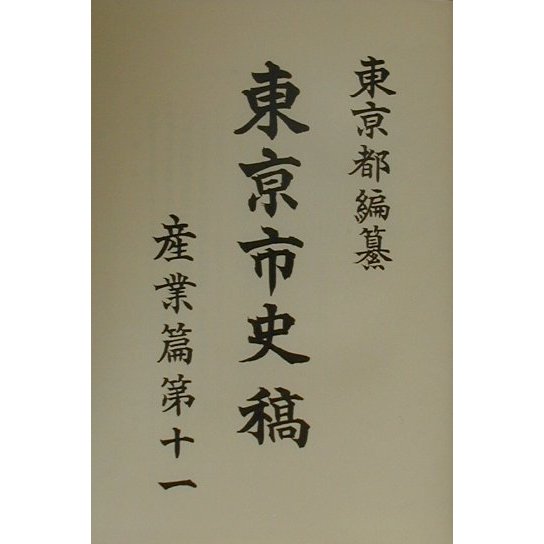 東京都編纂
東京市史稿
産業篇第十一